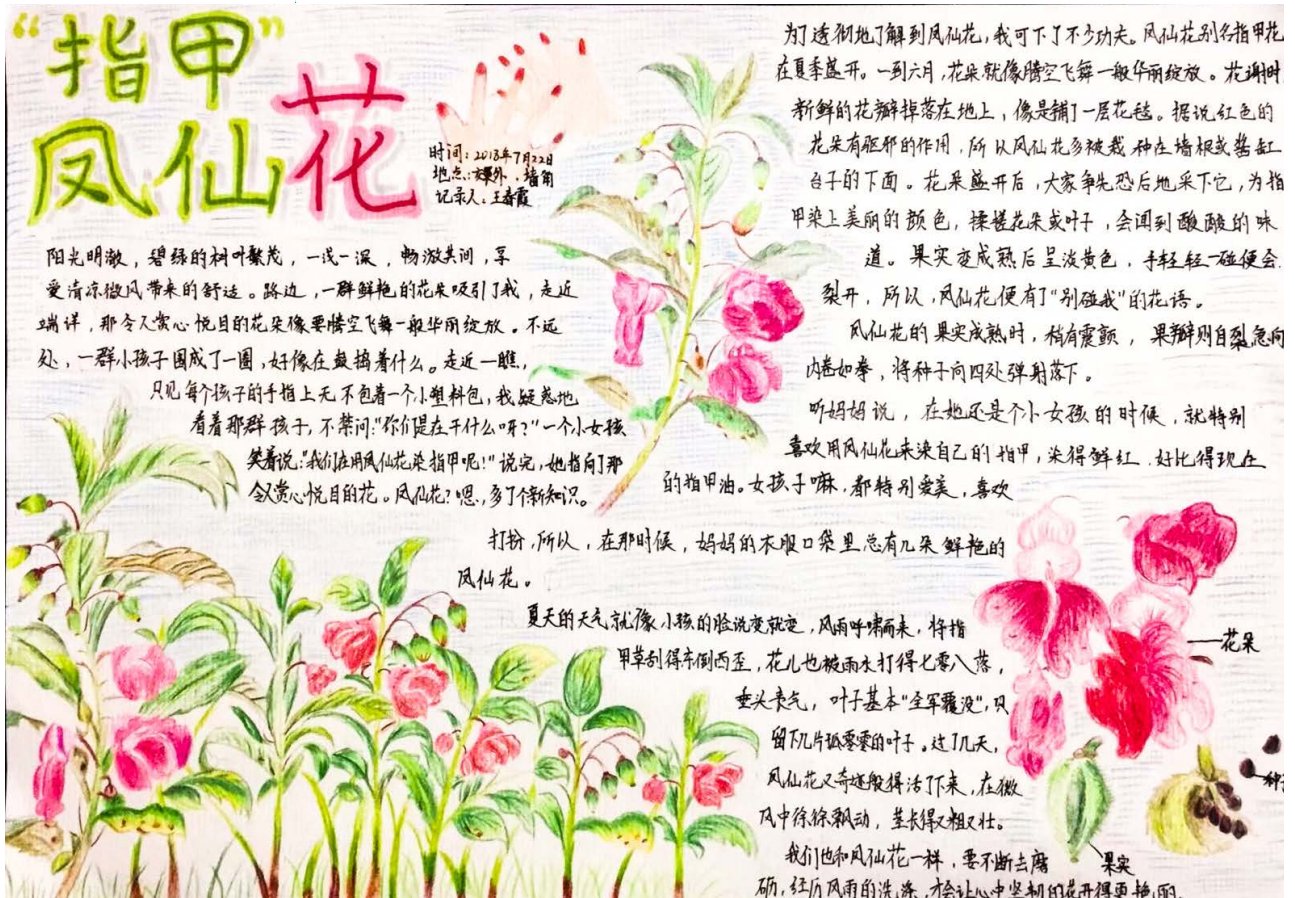 “指甲”
凤仙花
时间：2018年7月22日
地点：课外、墙角
记录人：王春霞
阳光明澈，碧绿的树叶繁茂，一浅一深，畅游其间，享
受清凉微风带来的舒适。路边，一群鲜艳的花朵吸引了我，走近
端详，那令人赏心悦目的花朵像要腾空飞舞一般华丽绽放。不远
处，一群小孩子围成了一圈，好像在鼓捣着什么。走近一瞧，
只见每个孩子的手指上无不包着一个小塑料包，我疑惑地
看着那群孩子，不禁问：“你们是在干什么呀？”一个小女孩
笑着说：“我们在用凤仙花染指甲呢！”说完，她指向了那
令人赏心悦目的花。凤仙花？嗯，多了个新知识。
为了透彻地了解到凤仙花，我可下了不少功夫。凤仙花别名指甲花
在夏季盛开。一到六月，花朵就像腾空飞舞一般华丽绽放。花谢时
新鲜的花瓣掉落在地上，像是铺了一层花毯。据说红色的
花朵有驱邪的作用，所以凤仙花多被栽种在墙根或酱缸
台子的下面。花朵盛开后，大家争先恐后地采下它，为指
甲染上美丽的颜色，揉搓花朵或叶子，会闻到酸酸的味
道。果实变成熟后呈淡黄色，手轻轻一碰便会
裂开，所以，凤仙花便有了“别碰我”的花语。
凤仙花的果实成熟时，稍有震颤，果瓣则自裂急向
内卷如拳，将种子向四处弹射落下。
听妈妈说，在她还是个小女孩的时候，就特别
喜欢用凤仙花来染自己的指甲，染得鲜红，好比得现在
的指甲油。女孩子嘛，都特别爱美，喜欢
打扮，所以，在那时候，妈妈的衣服口袋里总有几朵鲜艳的
凤仙花。
夏天的天气就像小孩的脸说变就变，风雨呼啸而来，将指
甲草刮得东倒西歪，花儿也被雨水打得七零八落，
垂头丧气，叶子基本“全军覆没”，只
留下几片孤零零的叶子。过了几天，
凤仙花又奇迹般得活了下来，在微
风中徐徐飘动，茎长得又粗又壮。
我们也和凤仙花一样，要不断去磨
砺，经历风雨的洗涤，才会让心中坚韧的花开得更艳丽。
花朵
果实
种